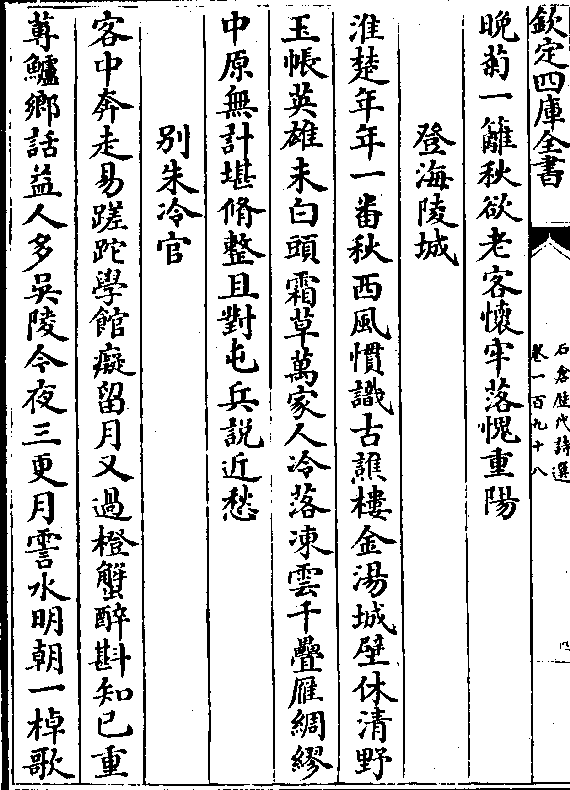 欽定四庫全書
石倉歷代詩選
卷一百九十八
四
晚菊一籬秋欲老客懷牢落愧重陽
登海陵城
淮楚年年一番秋西風慣識古譙樓金湯城壁休清野
玉帳英雄未白頭霜草萬家人冷落凍雲千疊雁綢繆
中原無計堪脩整且對屯兵說近愁
别朱冷官
客中奔走易蹉跎學館癡留月又過橙蟹醉斟知已重
蓴鱸鄉話益人多吳陵今夜三更月霅水明朝一棹歌